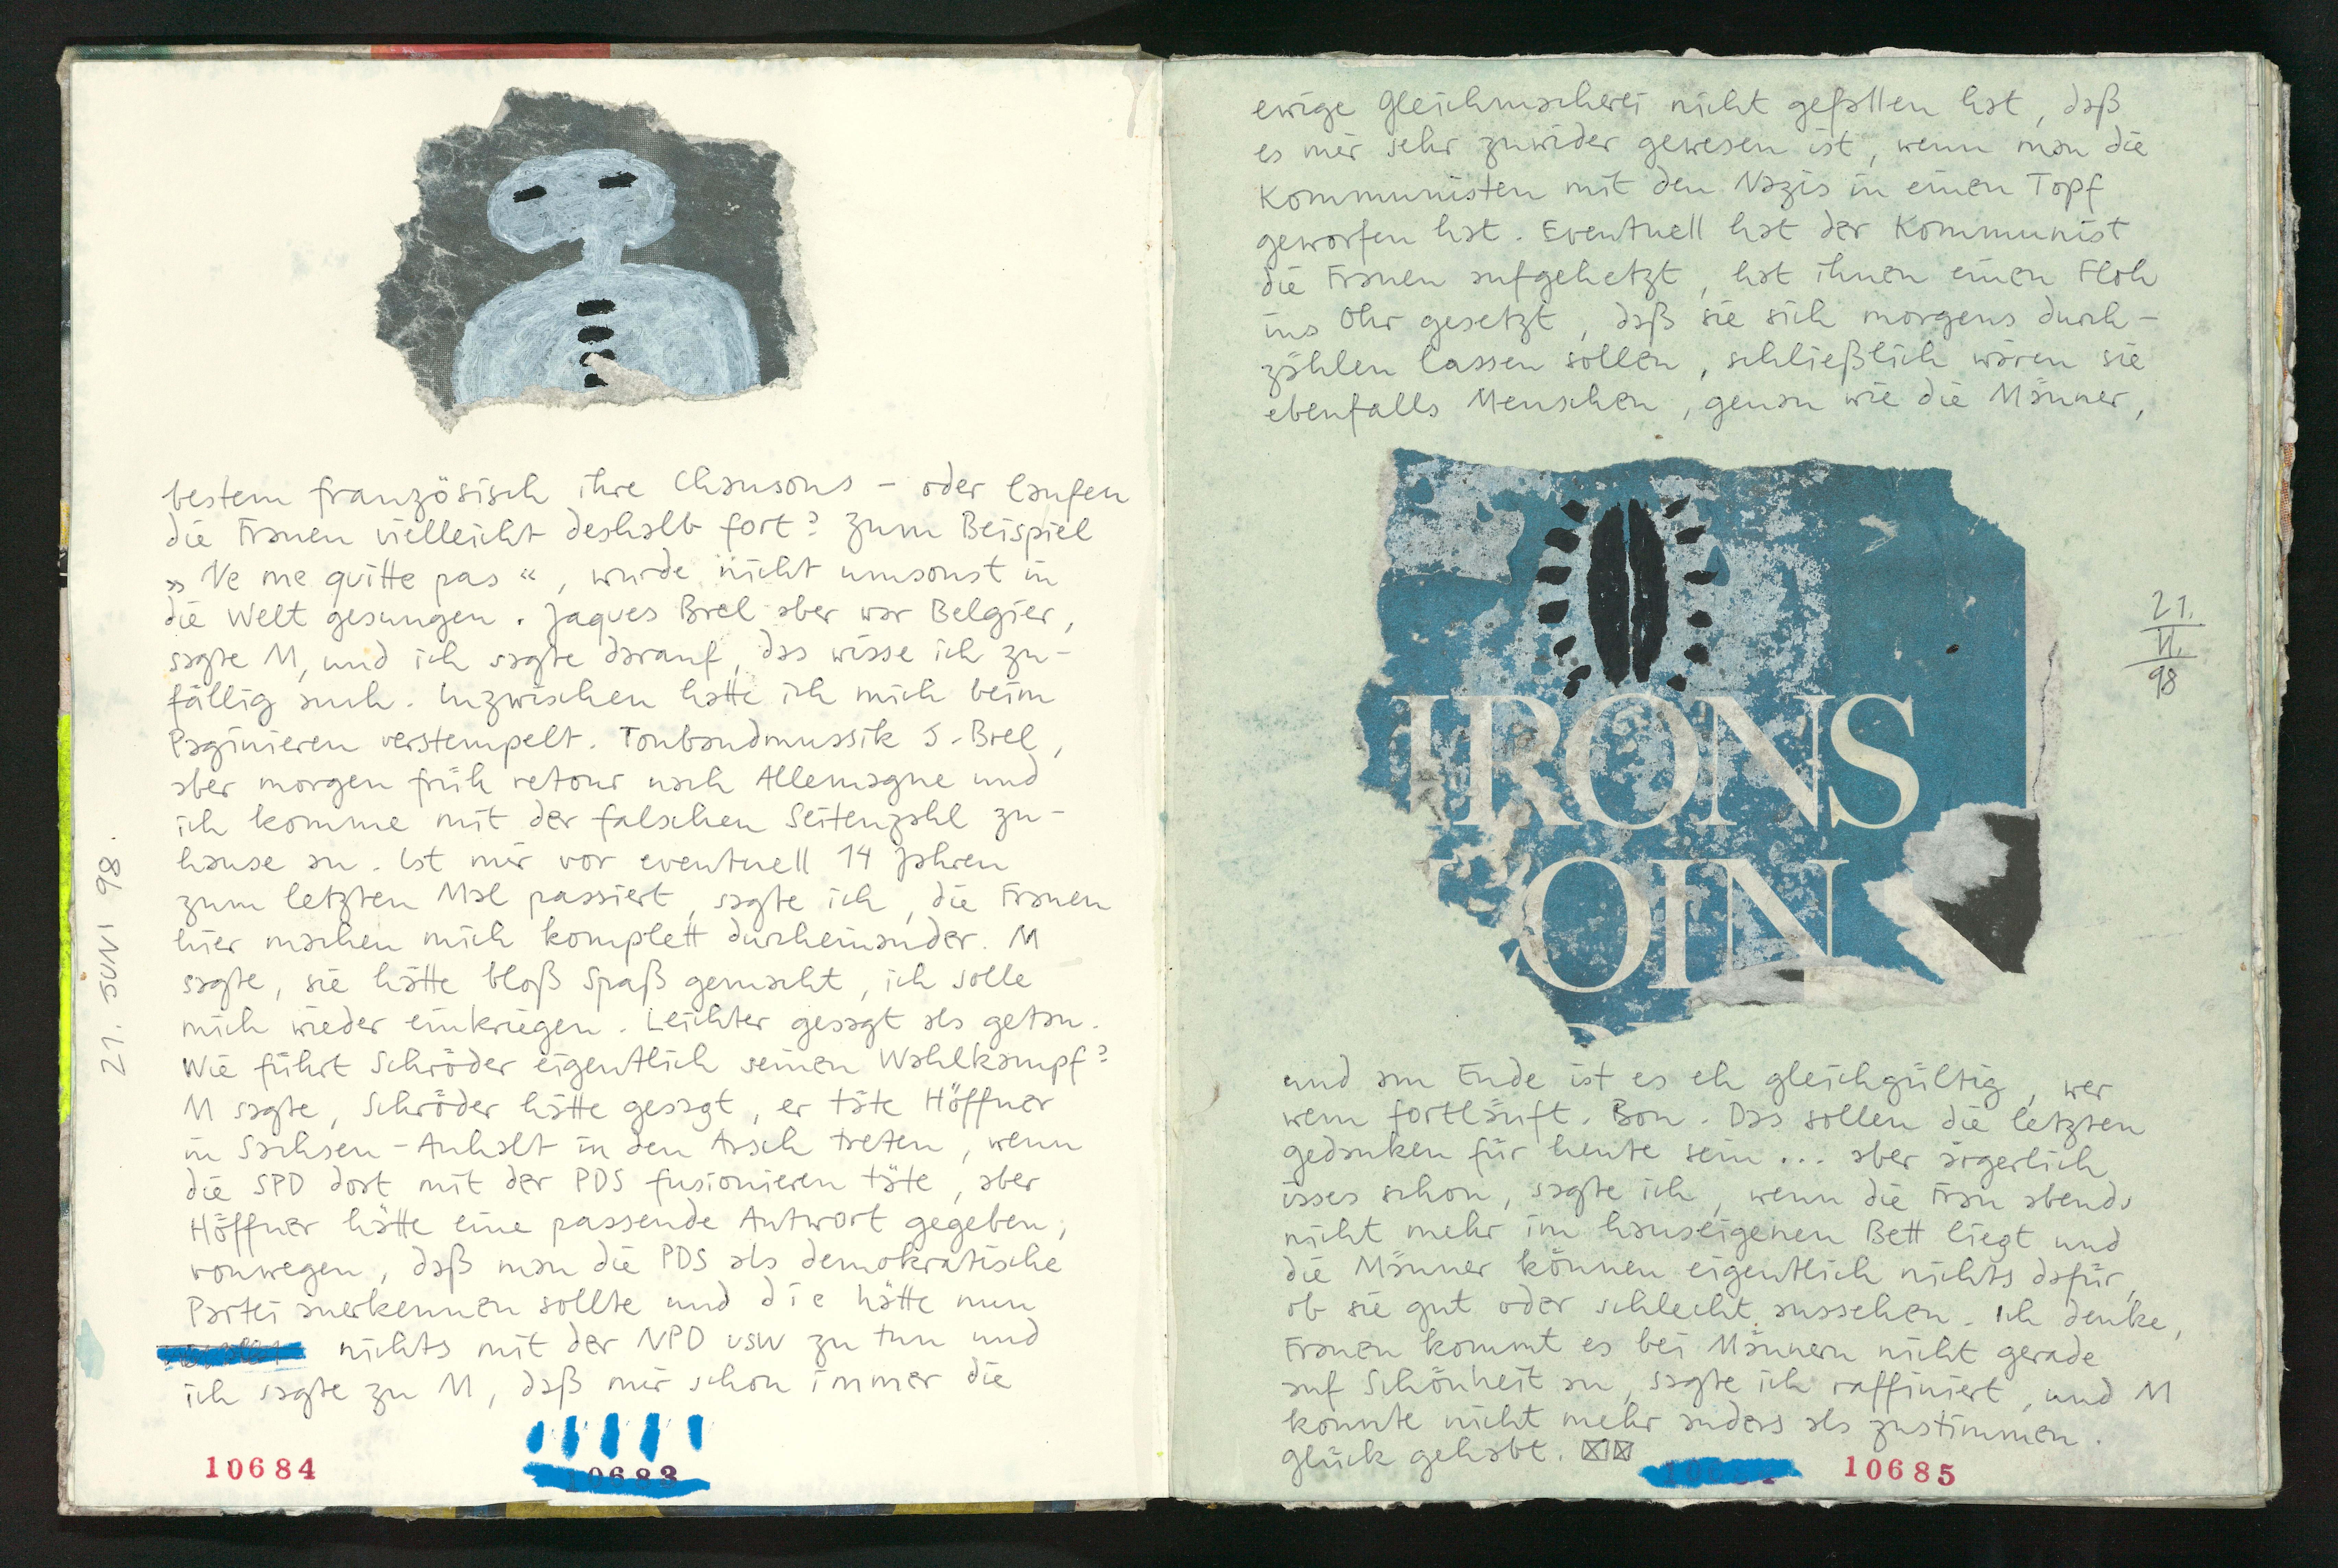 bestem französisch ihre Chansons – oder laufen
die Frauen vielleicht deshalb fort? Zum Beispiel
» Ne me quitte pas «, wurde nicht umsonst in
die Welt gesungen. Jaques Brel aber war Belgier,
sagte M, und ich sagte darauf, das wisse ich zu-
fällig auch. Inzwischen hatte ich mich beim
Paginieren verstempelt. Tonbandmussik J. Brel,
aber morgen früh retour nach Allemagne und
ich komme mit der falschen Seitenzahl zu-
hause an. Ist mir vor eventuell 14 Jahren
zum letzten Mal passiert, sagte ich, die Frauen
hier machen mich komplett durcheinander. M
sagte, sie hätte bloß Spaß gemacht, ich solle
mich wieder einkriegen. Leichter gesagt als getan.
Wie führt Schröder eigentlich seinen Wahlkampf?
M sagte, Schröder hätte gesagt, er täte Höffner
in Sachsen-Anhalt in den Arsch treten, wenn
die SPD dort mit der PDS fusionieren täte, aber
Höffner hätte eine passende Antwort gegeben,
vonwegen, daß man die PDS als demokratische
Partei anerkennen sollte und die hätte nun
nichts mit der NPD usw zu tun und
ich sagte zu M, daß mir schon immer die
21. JUNI 98.
10684
10683
ewige Gleichmacherei nicht gefallen hat, daß
es mir sehr zuwider gewesen ist, wenn man die
Kommunisten mit den Nazis in einen Topf
geworfen hat. Eventuell hat der Kommunist
die Frauen aufgehetzt, hat ihnen einen Floh
ins Ohr gesetzt, daß sie sich morgens durch-
zählen lassen sollen, schließlich wären sie
ebenfalls Menschen, genau wie die Männer,
IRONS
OIN
21.
VI.
98
und am Ende ist es eh gleichgültig, wer
wem fortläuft. Bon. Das sollen die letzten
gedanken für heute sein... aber ärgerlich
isses schon, sagte ich, wenn die Frau abends
nicht mehr im hauseigenen Bett liegt und
die Männer können eigentlich nichts dafür,
ob sie gut oder schlecht aussehen. Ich denke,
Frauen kommt es bei Männern nicht gerade
auf Schönheit an, sagte ich raffiniert, und M
konnte nicht mehr anders als zustimmen.
Glück gehabt.
10685